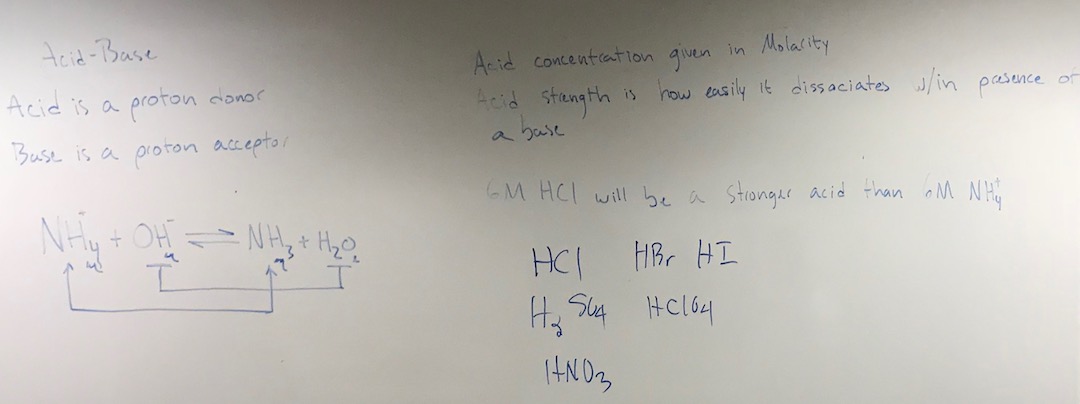 Acid-Base
Acid is a proton donor
Base is a proton acceptor
NH₄ + OH⁻ ⇌ NH₃ + H₂O
Acid concentration given in Molarity
Acid strength is how easily it dissociates w/in presence of
a base
6M HCl will be a stronger acid than 6M NH₄⁺
HCl HBr HI
H₂SO₄ HClO₄
HNO₃